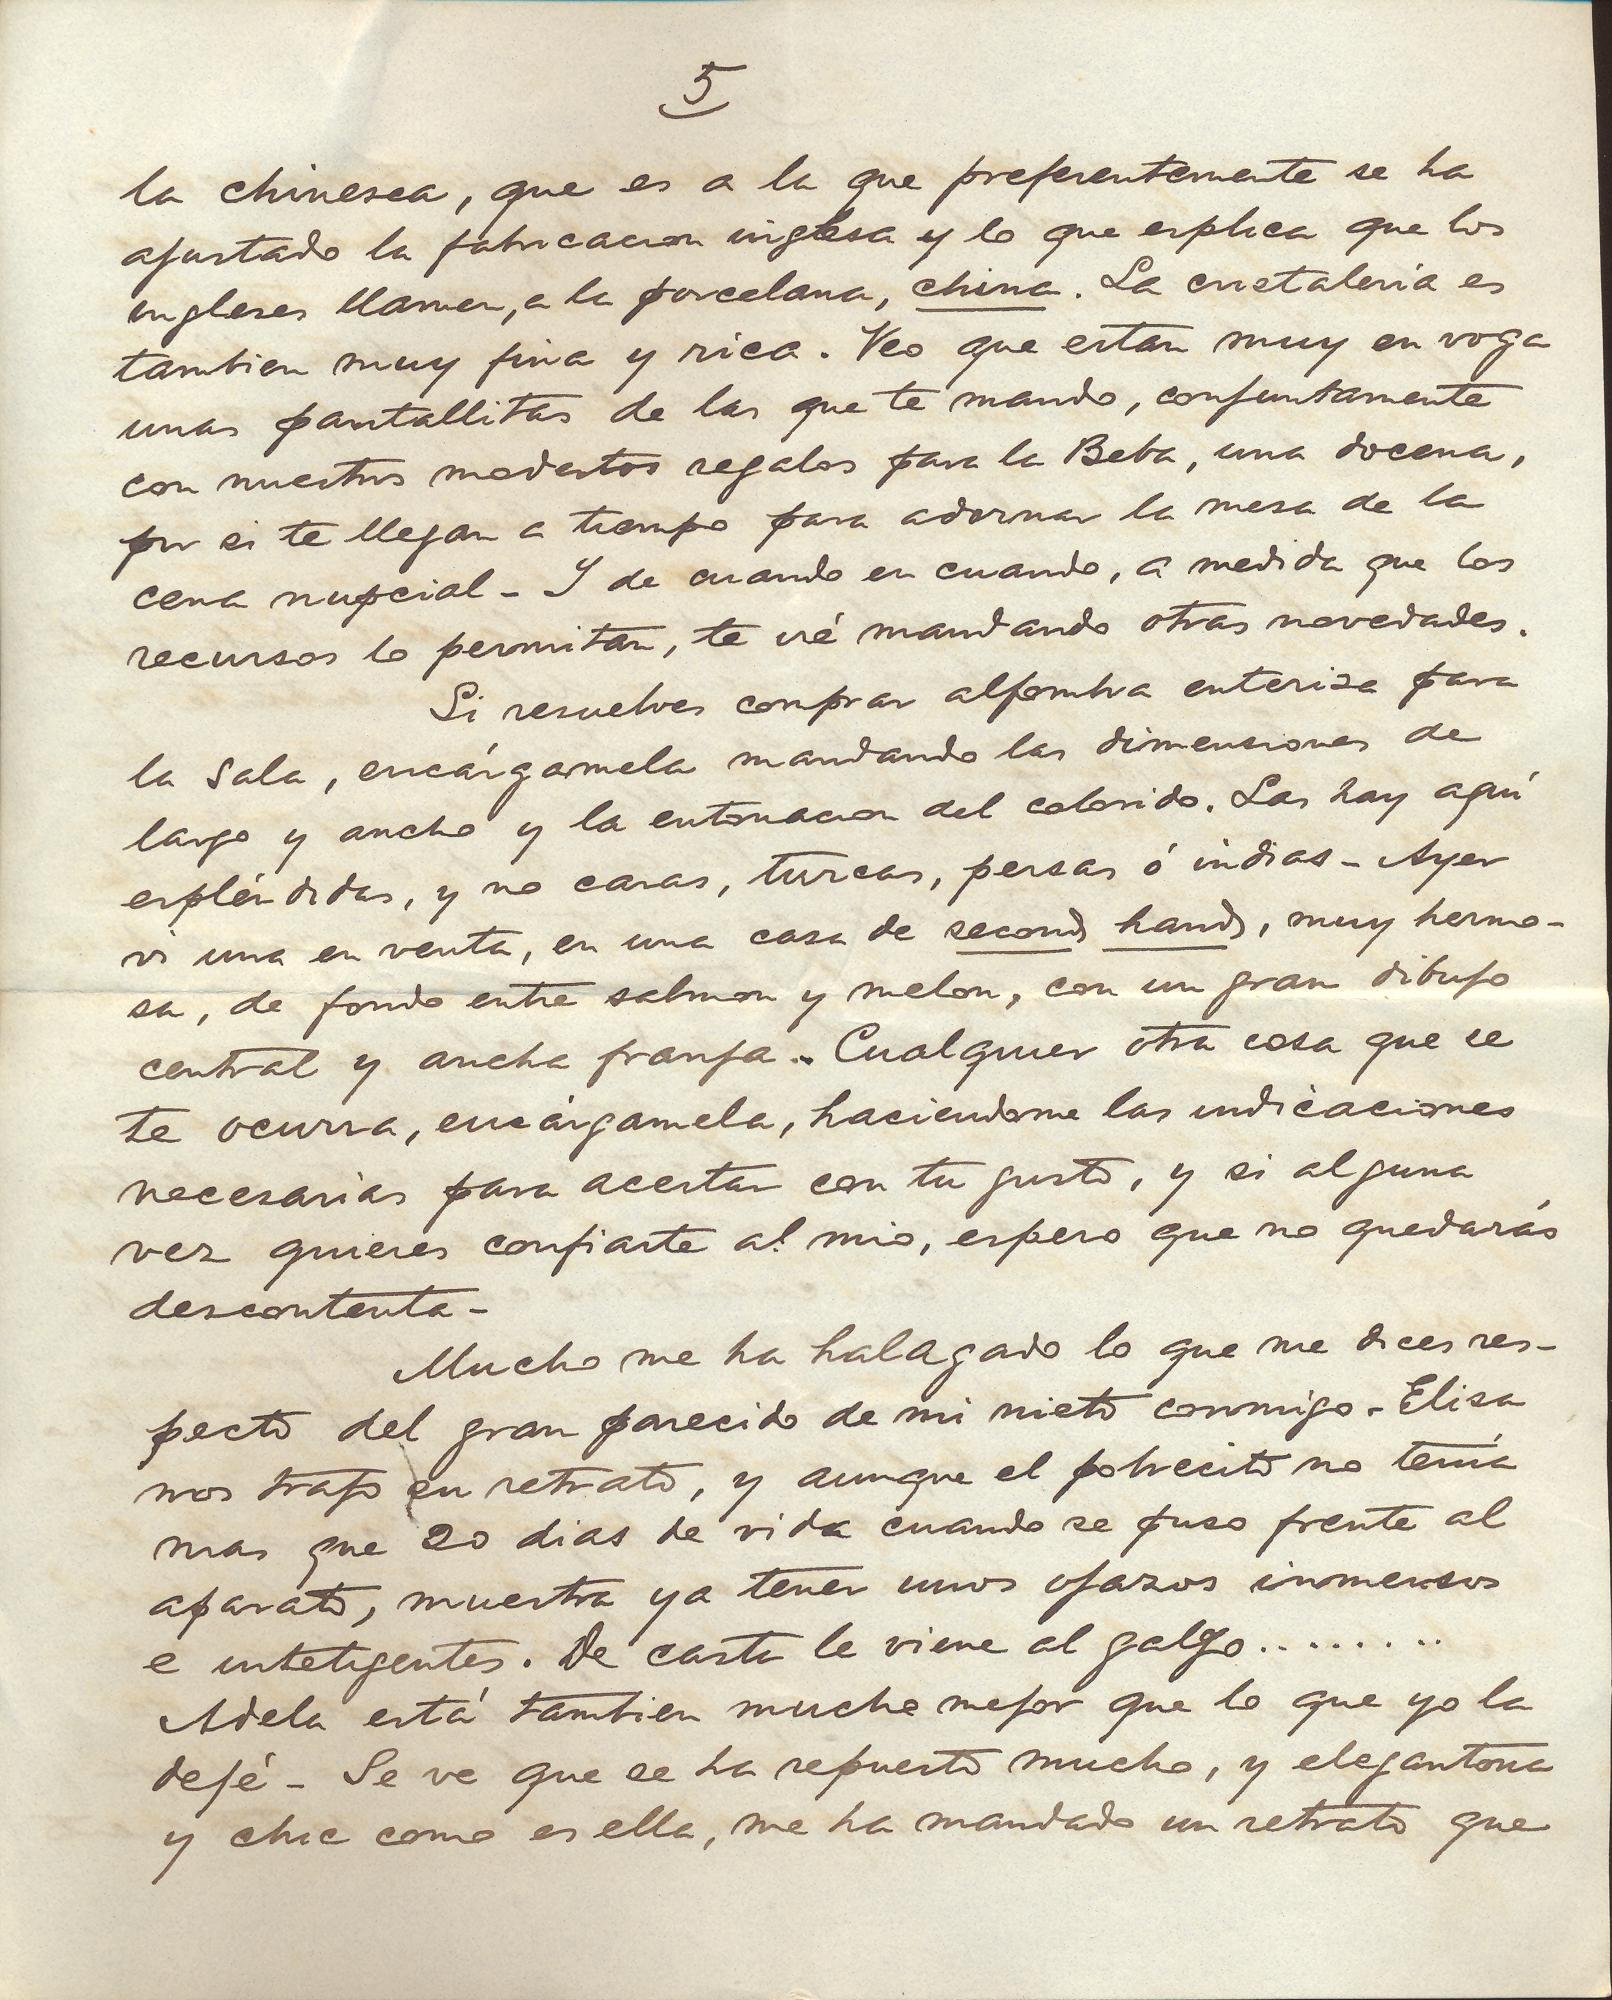 5
la chinesca, que es a la que preferentemente se ha
ajustado la fabricacion inglesa y lo que esplica que los
ingleses llamen, a la porcelana, china. La cristaleria es
tambien muy fina y rica. Veo que estan muy en voga
unas pantallitas de las que te mando, conjuntamente
con nuestros modestos regalos para la Beba, una docena,
por si te llegan a tiempo para adornar la mesa de la
cena nupcial - Y de cuando en cuando, a medida que los
recursos lo permitan, te iré mandando otras novedades.
Si resuelves comprar alfombra enteriza para
la sala, encárgamela mandando las dimensiones de
largo y ancho y la entonacion del colorido. Las hay aquí
espléndidas, y no caras, turcas, persas ó indias - Ayer
vi una en venta, en una casa de second hand, muy hermo-
sa, de fondo entre salmon y melon, con un gran dibujo
central y ancha franja. Cualquier otra cosa que se
te ocurra, encárgamela, haciendome las indicaciones
necesarias para acertar con tu gusto, y si alguna
vez quieres confiarte al mio, espero que no quedarás
descontenta -
Mucho me ha halagado lo que me dices res-
pecto del gran parecido de mi nieto conmigo - Elisa
nos trajo su retrato, y aunque el pobrecito no tenía
mas que 20 dias de vida cuando se puso frente al
aparato, muestra ya tener unos ojazos inmensos
e inteligentes. De casta le viene al galgo.........
Adela está tambien mucho mejor que lo que yo la
dejé - Se ve que se ha repuesto mucho, y elegantona
y chic como es ella, me ha mandado un retrato que